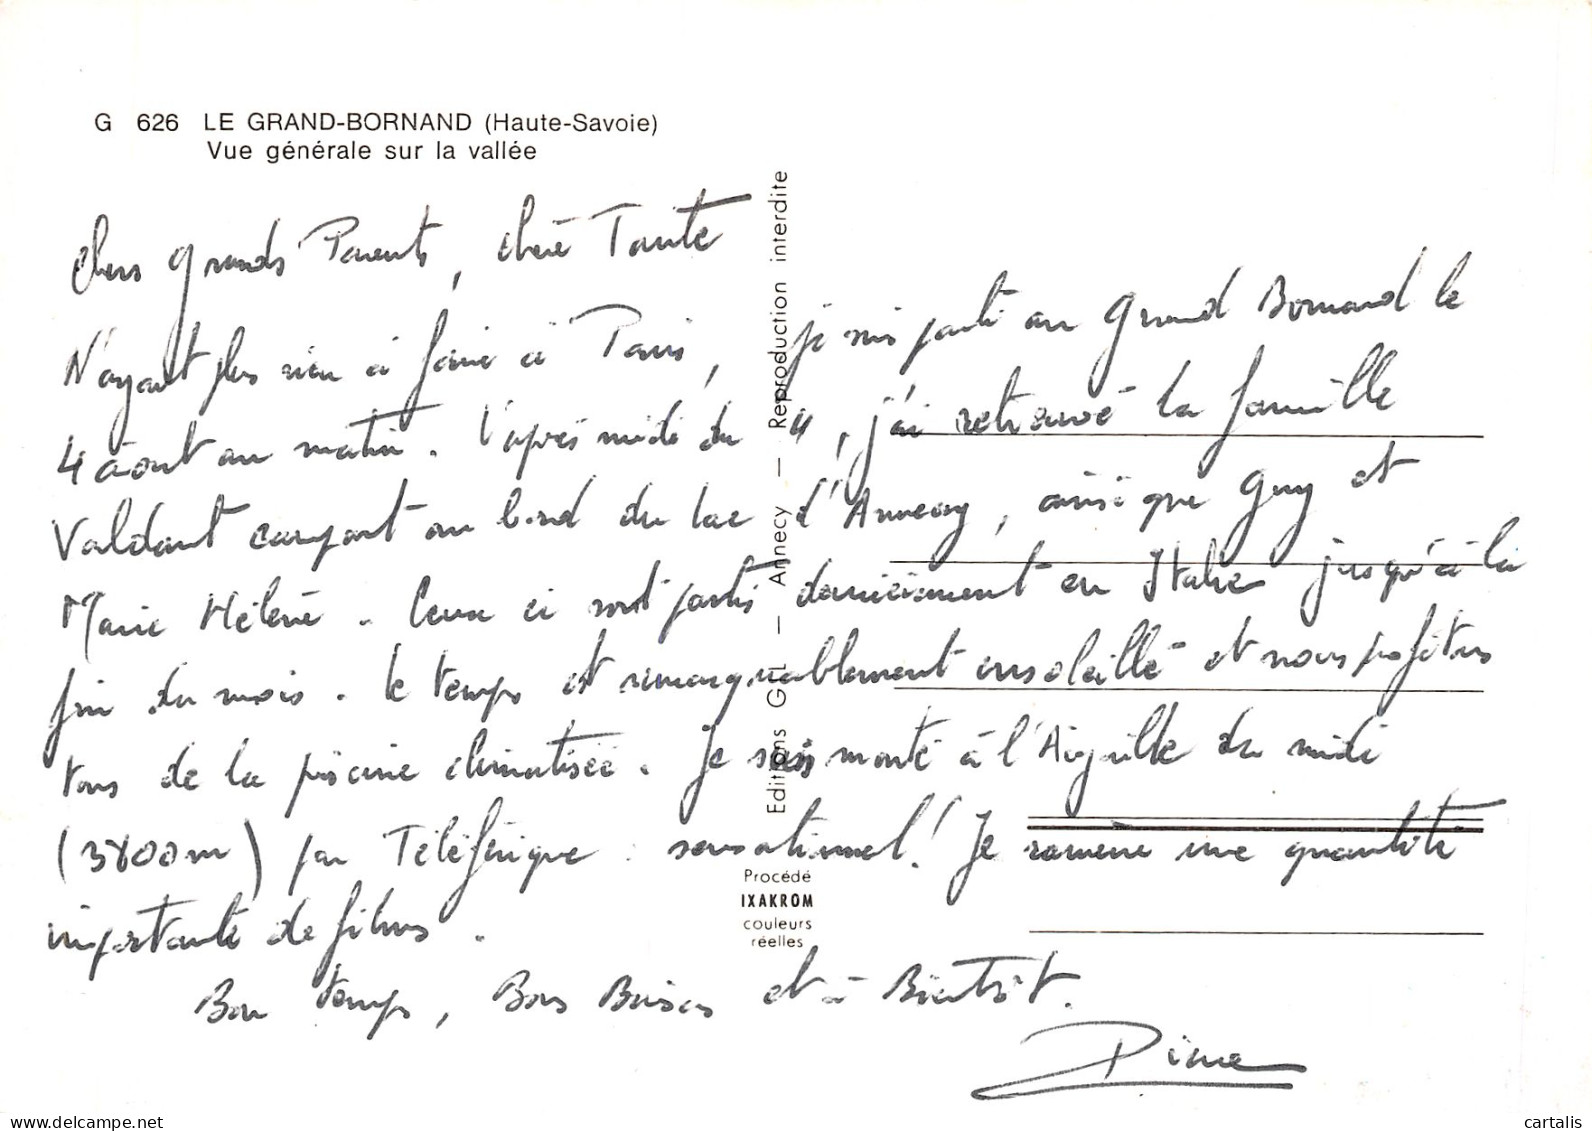 G 626 LE GRAND-BORNAND (Haute-Savoie)
Vue générale sur la vallée
Chers Grands Parents, chère Tante
N'ayant plus rien à faire à Paris, je suis parti au Grand Bornand le
4 août au matin. L'après midi du 4, j'ai retrouvé la famille
Valdant campant au bord du lac d'Annecy, ainsi que Guy et
Marie Hélène. Ceux ci sont partis dernièrement en Italie jusqu'à la
fin du mois. Le temps est remarquablement ensoleillé et nous profitons
tous de la piscine climatisée. Je suis monté à l'Aiguille du midi
(3800m) par Téléférique : sensationnel! Je ramène une quantité
importante de films.
Bon temps, Bons Baisers et à Bientôt.
Editions GIL — Annecy — Reproduction interdite
Procédé
IXAKROM
couleurs
réelles
www.delcampe.net
cartalis